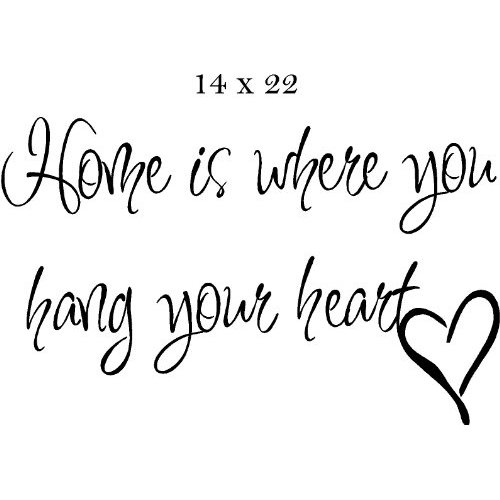 14 x 22
Home is where you
hang your heart